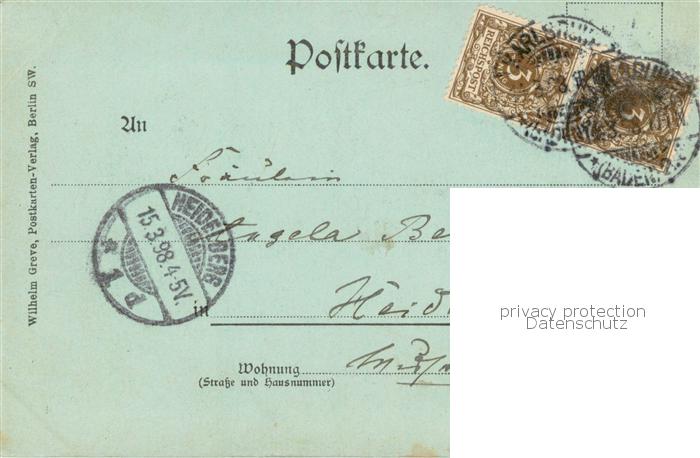 Postkarte.
REICHSPOST
3
3
KARLSRUHE
(BADEN)
An
Fräulein
Angela Be
in Heid
Wohnung
(Straße und Hausnummer)
HEIDELBERG
15.3.98.4-5V.
P 1 *
Wilhelm Greve, Postkarten-Verlag, Berlin SW.
privacy protection
Datenschutz